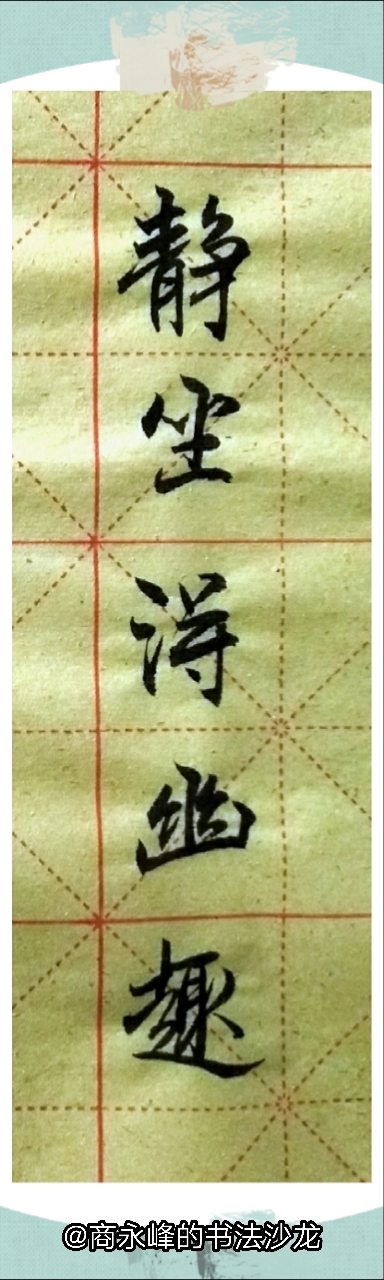 静坐得幽趣
@商永峰的书法沙龙